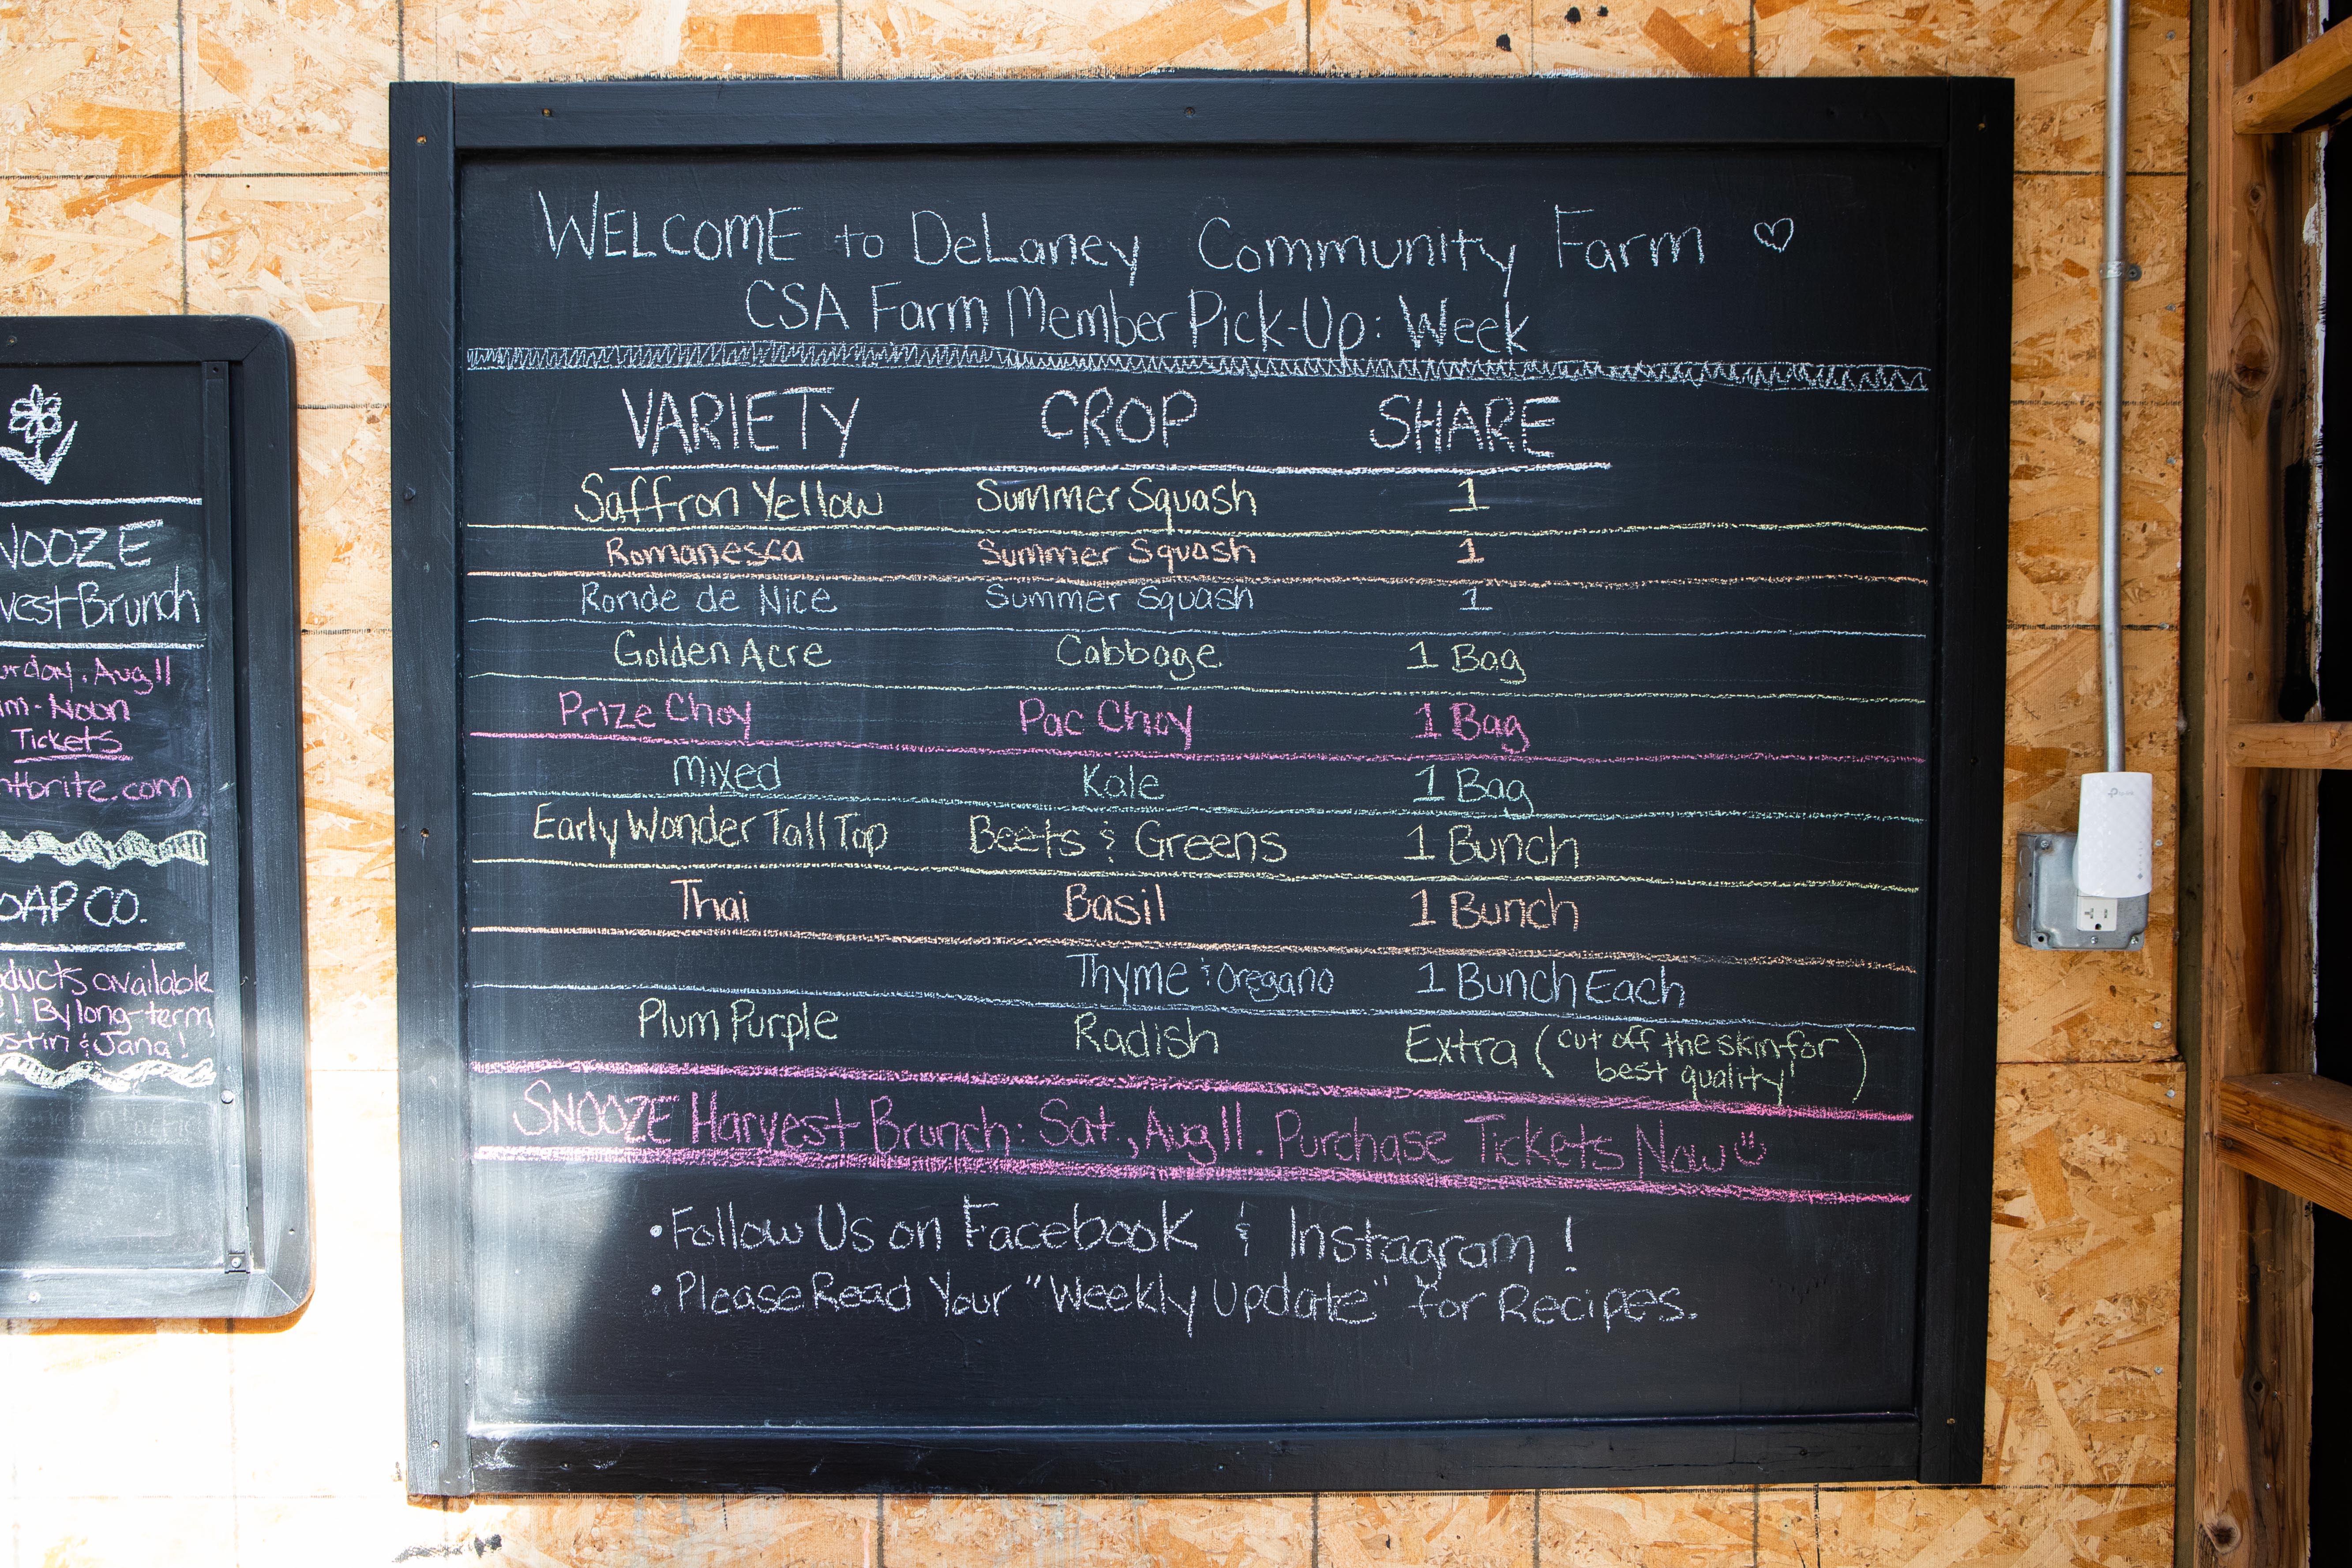 WELCOME to DeLaney Community Farm
CSA Farm Member Pick-Up: Week
VARIETY CROP SHARE
Saffron Yellow Summer Squash 1
Romanesca Summer Squash 1
Ronde de Nice Summer Squash 1
Golden Acre Cabbage 1 Bag
Prize Choy Pac Choy 1 Bag
Mixed Kale 1 Bag
Early Wonder Tall Top Beets & Greens 1 Bunch
Thai Basil 1 Bunch
Thyme & Oregano 1 Bunch Each
Plum Purple Radish Extra (cut off the skin for
best quality!)
SNOOZE Harvest Brunch: Sat., Aug 11. Purchase Tickets Now
• Follow Us on Facebook & Instagram!
• Please Read Your "Weekly Update" for Recipes.
NOOZE
vest Brunch
urday, Aug 11
m-Noon
Tickets
ntbrite.com
OAP CO.
ducts available
e! By long-term
stin & Jana!